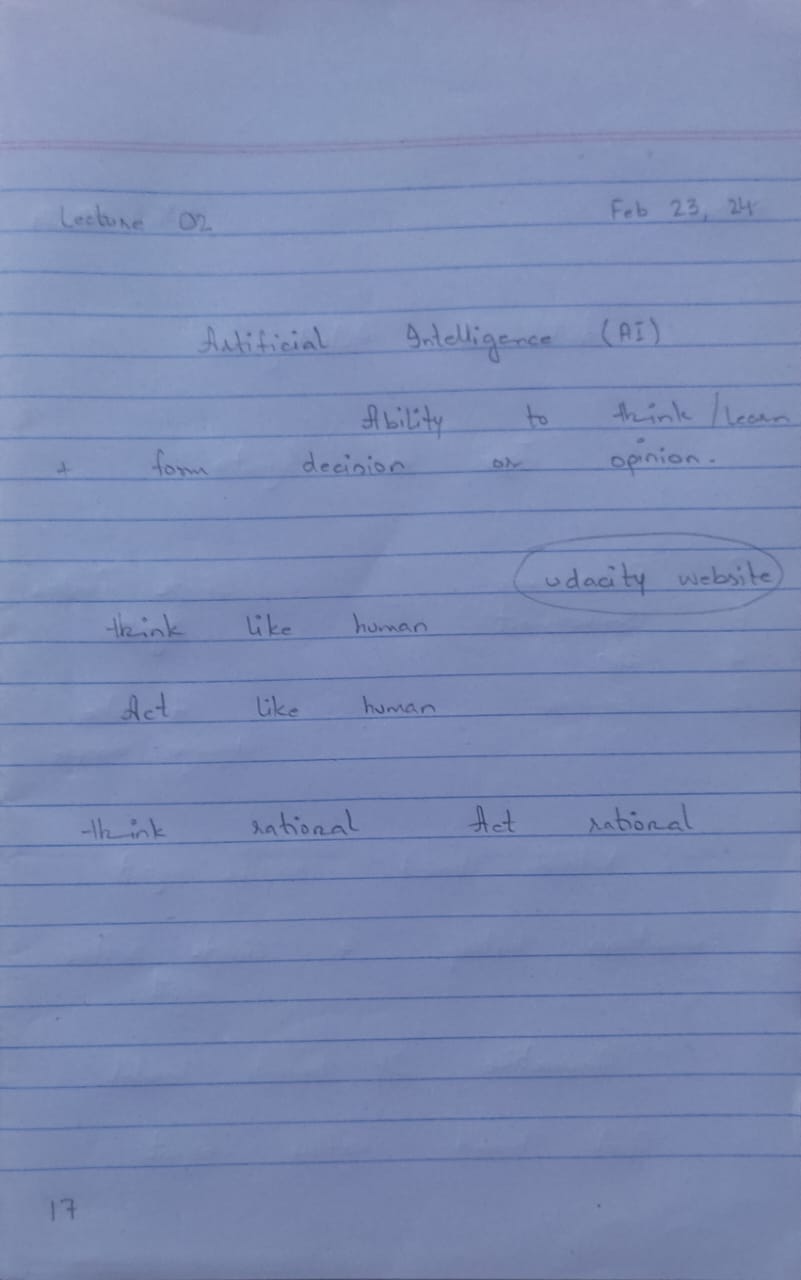 Lecture 02 Feb 23, 24
Artificial Intelligence (AI)
Ability to think / learn
+ form decision or opinion.
udacity website
think like human
Act like human
think rational Act rational
17